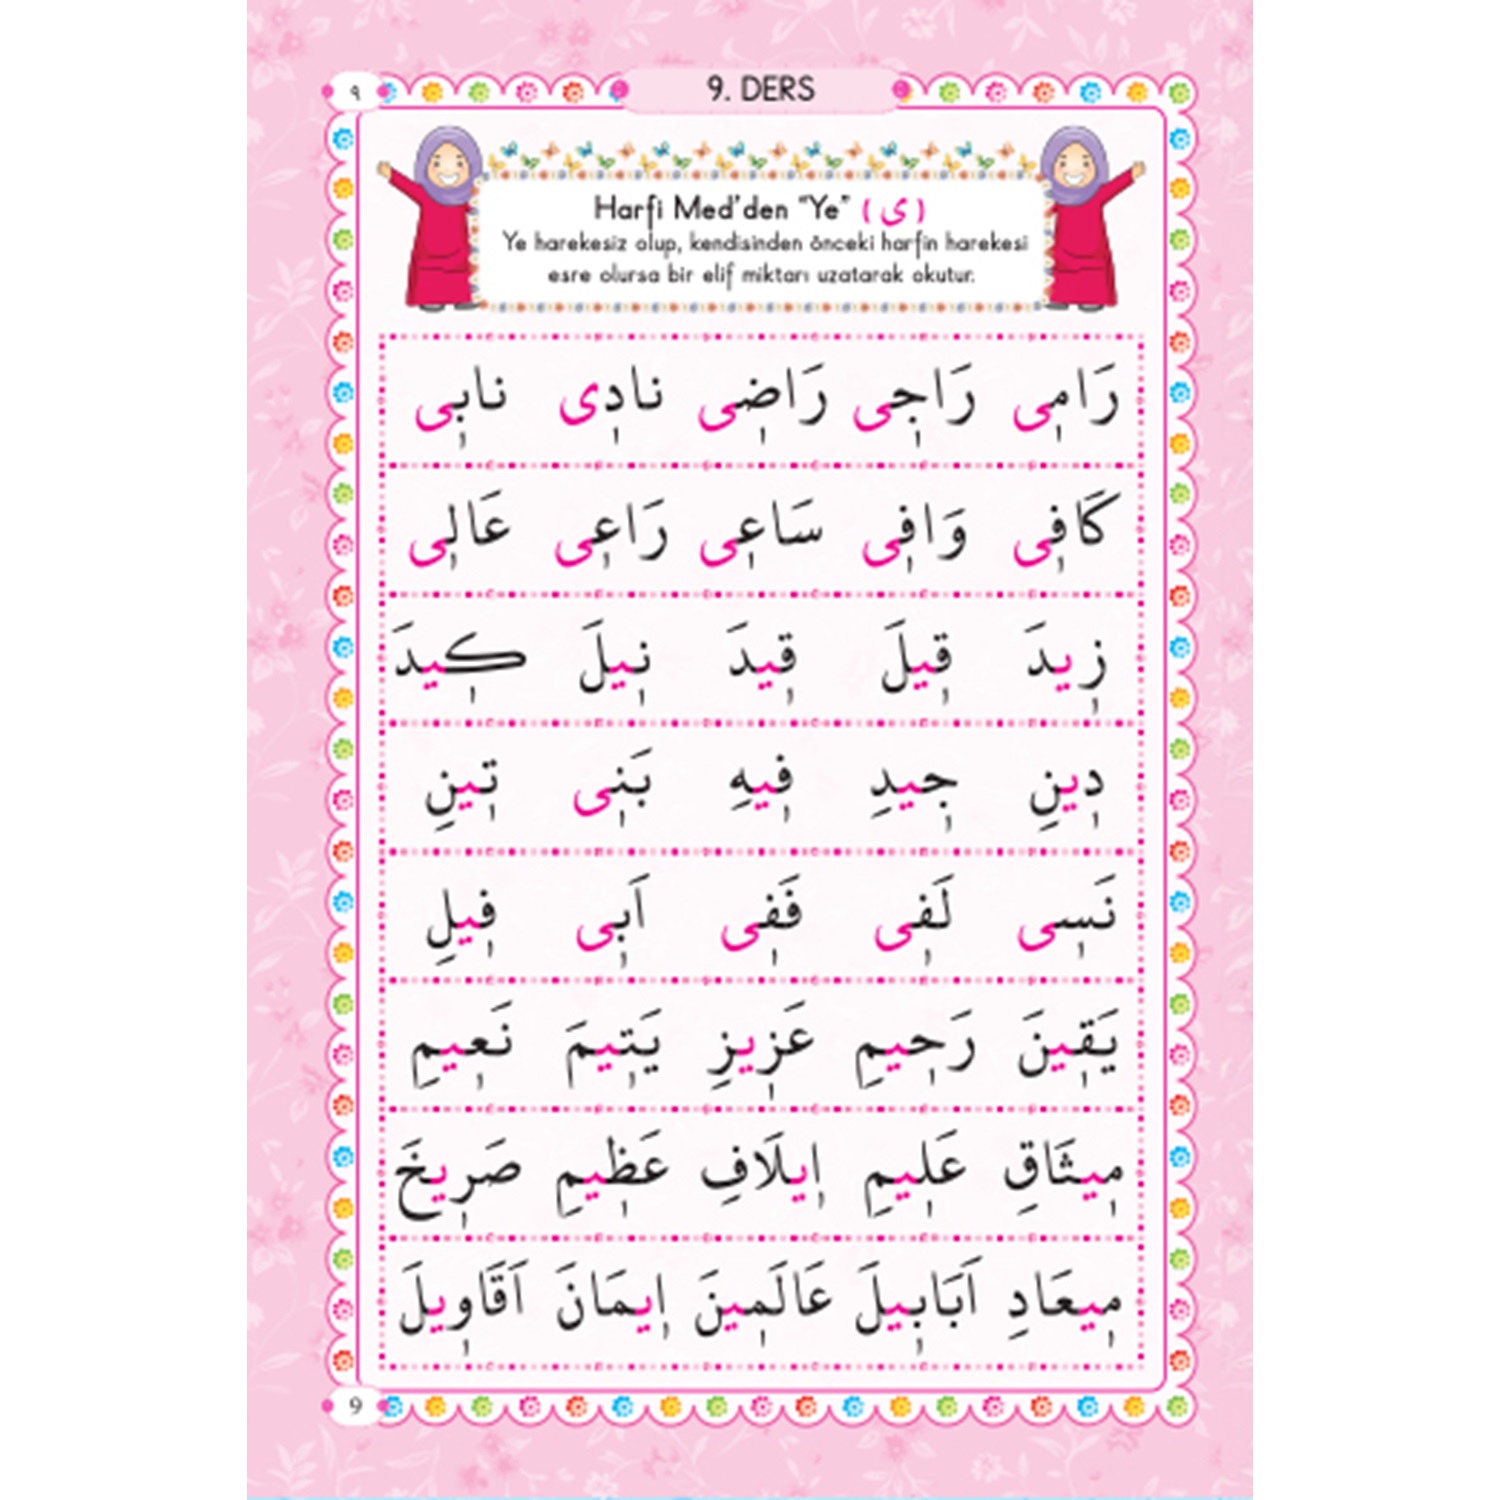 ٩
9. DERS
Harfi Med'den "Ye" ( ى )
Ye harekesiz olup, kendisinden önceki harfin harekesi
esre olursa bir elif miktarı uzatarak okutur.
رَامٖى رَاجٖى رَاضٖى نادٖى نابٖى
كَافٖى وَافٖى سَاعٖى رَاعٖى عَالٖى
زٖيدَ قٖيلَ قٖيدَ نٖيلَ كٖيدَ
دٖينِ جٖيدِ فٖيهِ بَنٖى تٖينِ
نَسٖى لَفٖى فَفٖى اَبٖى فٖيلِ
يَقٖينَ رَحٖيمِ عَزٖيزِ يَتٖيمَ نَعٖيمِ
مٖيثَاقِ عَلٖيمِ اٖيلَافِ عَظٖيمِ صَرٖيخَ
مٖيعَادِ اَبَابٖيلَ عَالَمٖينَ اٖيمَانَ اَقَاوٖيلَ
9